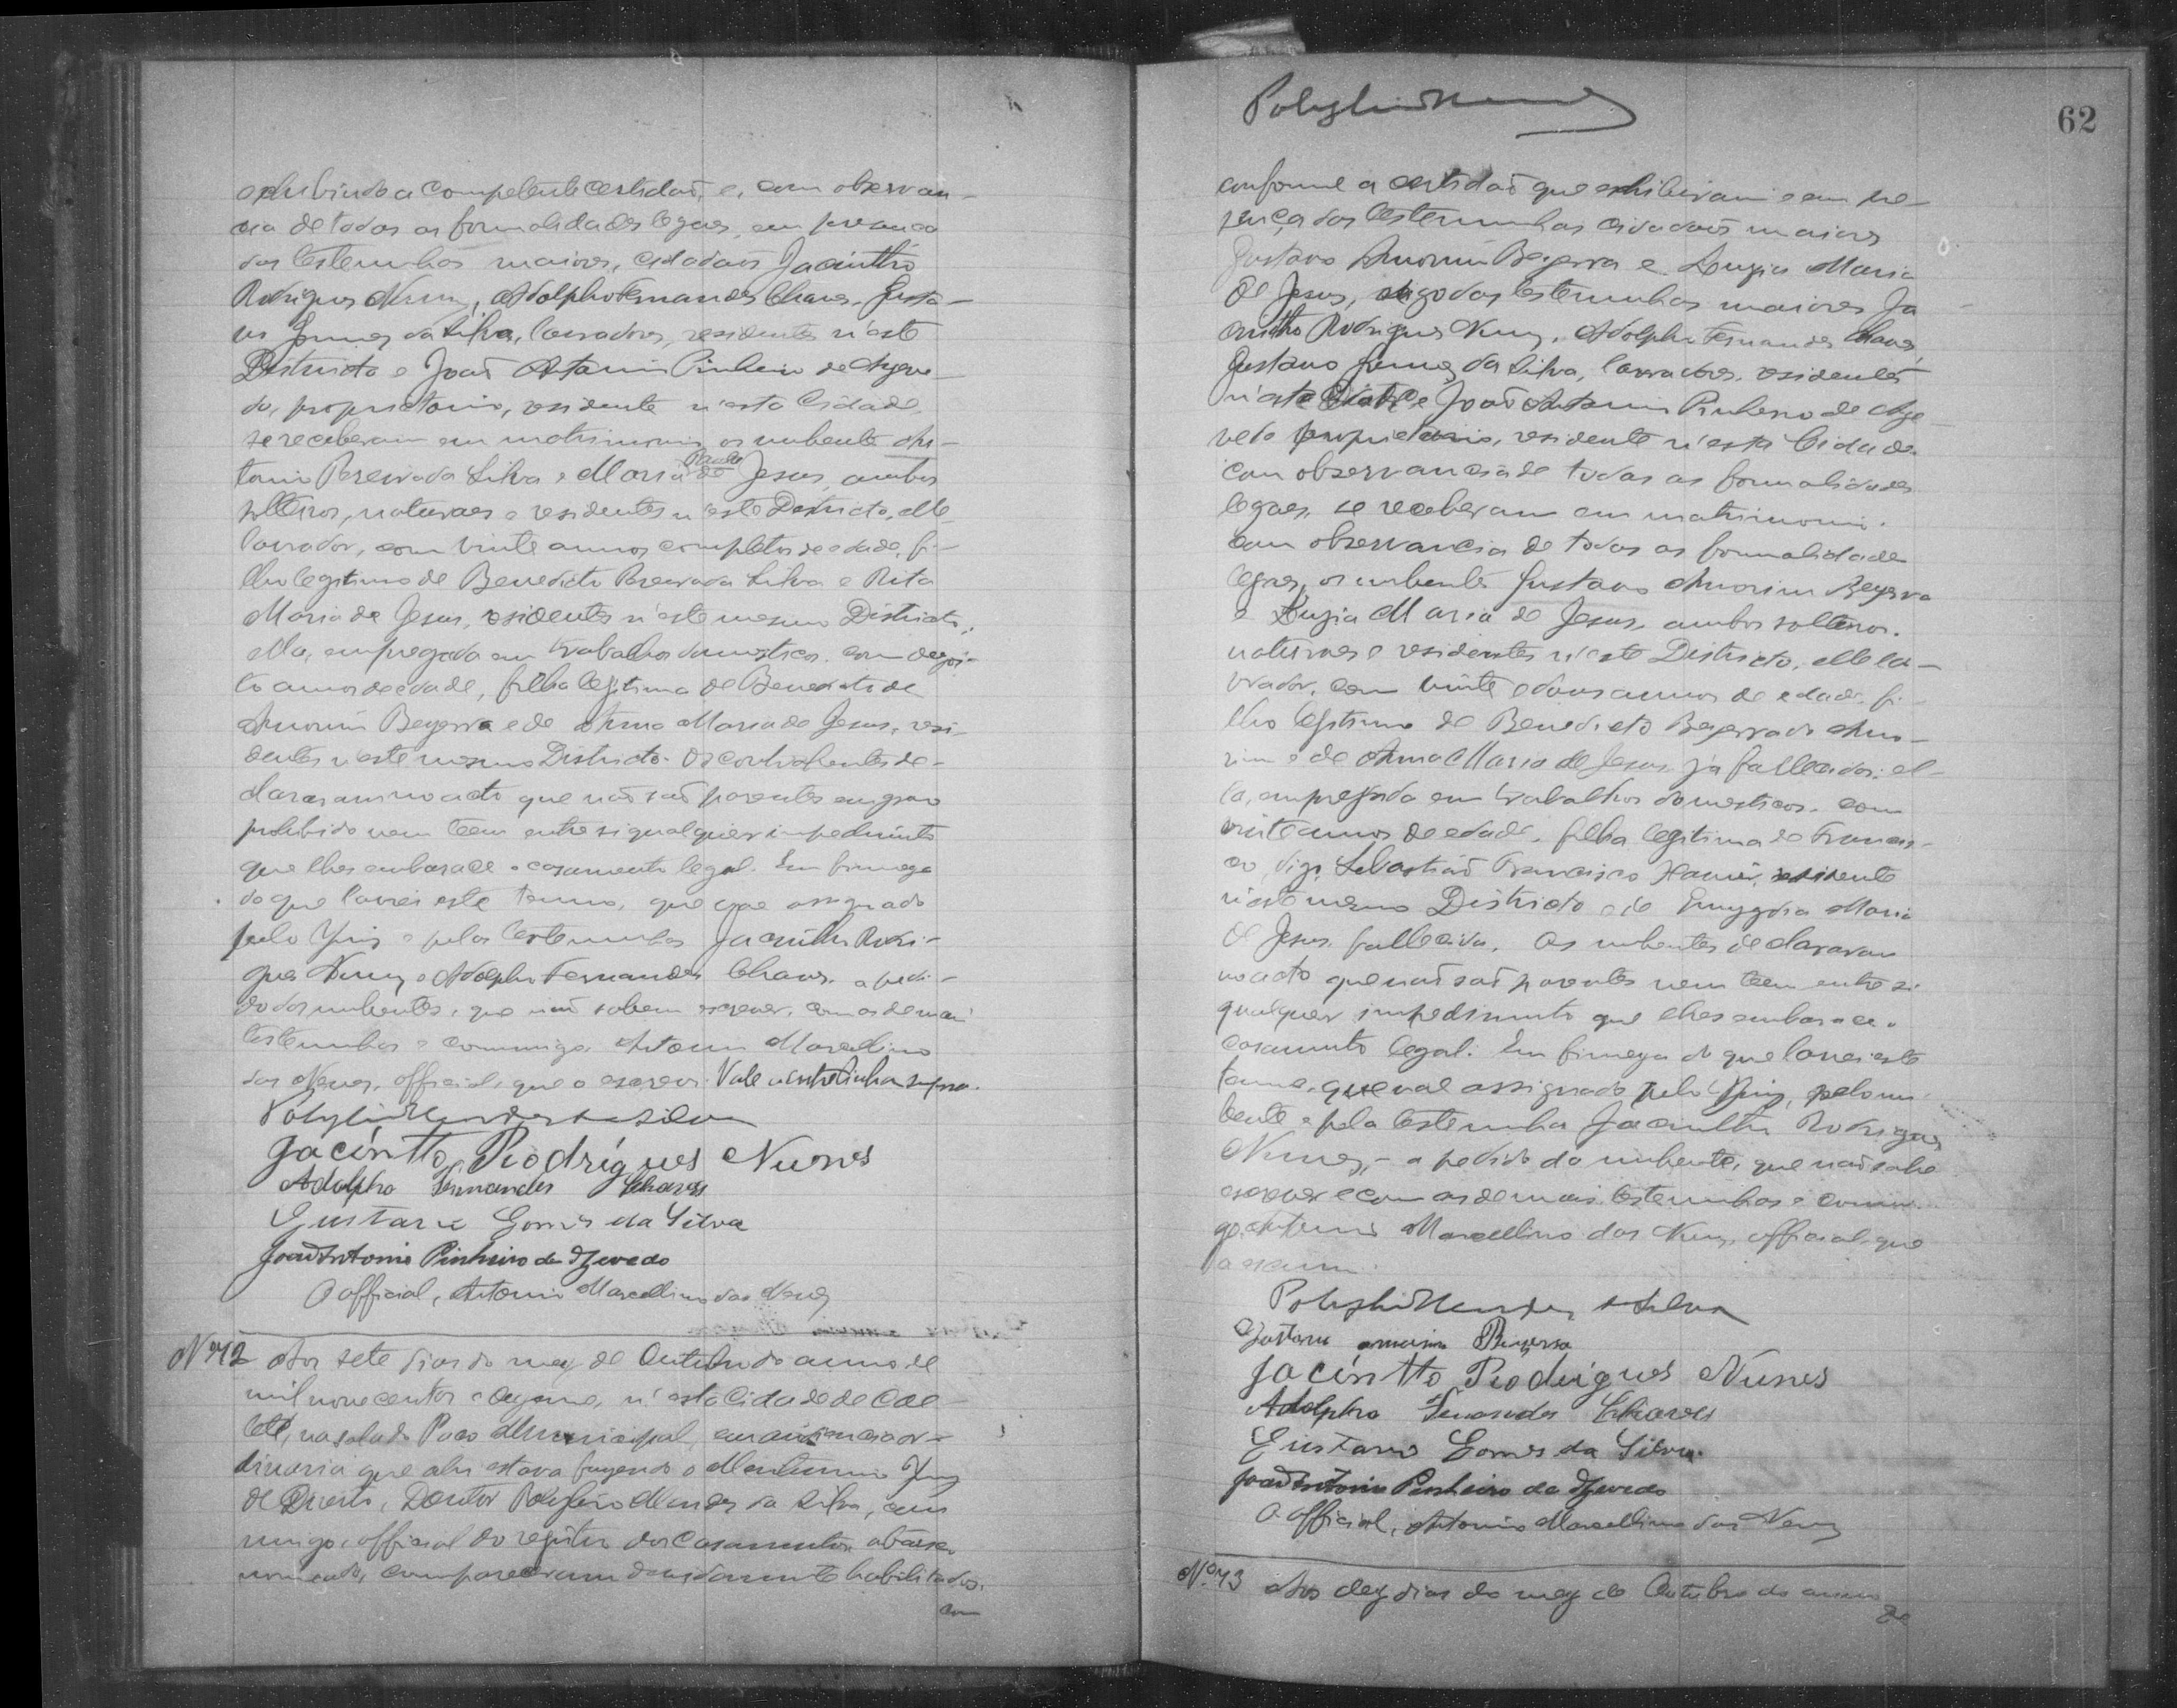 exhibindo a competente certidão, e, com observan-
cia de todas as formalidades legaes, em presença
das testemunhas maiores, cidadãos Jacintho
Rodrigues Nunes, Adolpho Fernandes Chaves, Gusta-
vo Gomes da Silva, lavradores, residentes n'este
Districto e João Antonio Pinheiro de Azeve-
do, proprietario, residente n'esta Cidade,
se receberam em matrimonio os nubentes An-
tonio Pereira da Silva e Maria de Jesus, ambos
solteiros, naturaes e residentes n'este Districto, elle
lavrador, com vinte annos completos de edade, fi-
lho legitimo de Benedicto Pereira da Silva e Rita
Maria de Jesus, residentes n'este mesmo Districto;
ella, empregada em trabalhos domesticos, com dezoi-
to annos de edade, filha legitima de Benedicto de
Amorim Bezerra e de Anna Maria de Jesus, resi-
dentes n'este mesmo Districto. Os contrahentes de-
clararam no acto que não são parentes em grao
prohibido nem teem entre si qualquer impedimento
que lhes embarace o casamento legal. Em firmeza
do que lavrei este termo, que vae assignado
pelo Juiz e pelas testemunhas Jacintho Rodri-
gues Nunes e Adolpho Fernandes Chaves, a pedi-
do dos nubentes, que não sabem escrever, com as demais
testemunhas e commigo, Antonio Marcellino
das Neves, official, que o escrevi. Vale a entrelinha supra.
Polyglio Mendes da Silva
Jacíntto Rodrígues Nunes
Adolpho Fernandes Chaves
Gustavo Gomes da Silva
João Antonio Pinheiro de Azevedo
O official, Antonio Marcellino das Neves
Nº 42 Aos sete dias do mez de Outubro do anno de
mil novecentos e onze, n'esta Cidade de Cae-
teté, na sala do Paço Municipal, em audiencia or-
dinaria que ahi estava fazendo o Meritissimo Juiz
de Direito, Doutor Polyglio Mendes da Silva, com-
migo, official do registro dos casamentos abaixo
nomeado, compareceram devidamente habilitados,
com
62
conforme a certidão que exhibiram e em pre-
sença das testemunhas cidadãos maiores
Gustavo Amorim Bezerra e Luzia Maria
de Jesus, digo das testemunhas maiores Ja-
cintho Rodrigues Nunes, Adolpho Fernandes Chaves,
Gustavo Gomes da Silva, lavradores, residentes
n'este e João Antonio Pinheiro de Aze-
vedo proprietario, residente n'esta Cidade,
com observancia de todas as formalidades
legaes, se receberam em matrimonio.
com observancia de todas as formalidades
legaes, os nubentes Gustavo Amorim Bezerra
e Luzia Maria de Jesus, ambos solteiros,
naturaes e residentes n'este Districto, elle la-
vrador, com vinte e dous annos de edade, fi-
lho legitimo de Benedicto Bezerra do Amo-
rim e de Anna Maria de Jesus, já fallecidos; el-
la, empregada em trabalhos domesticos, com
vinte annos de edade, filha legitima de Francis-
co, digo, Sebastião Francisco Xavier, residente
n'este mesmo Districto e de Emygdia Maria
de Jesus, fallecida. Os nubentes declararam
no acto que não são parentes nem teem entre si
qualquer impedimento que lhes embarace o
casamento legal. Em firmeza do que lavrei este
termo, que vae assignado pelo Juiz, pelo nu-
bente e pela testemunha Jacintho Rodrigues
Nunes, - a pedido da nubente, que não sabe
escrever e com as demais testemunhas e commi-
go, Antonio Marcellino das Neves, official, que
o escrevi.
Polyglio Mendes da Silva
Gustavo amorim Bezerra
Jacíntto Rodrigues Nunes
Adolpho Fernandes Chaves
Gustavo Gomes da Silva
João Antonio Pinheiro de Azevedo
O official, Antonio Marcellino das Neves
Nº 43 Aos dez dias do mez de Outubro do anno
de